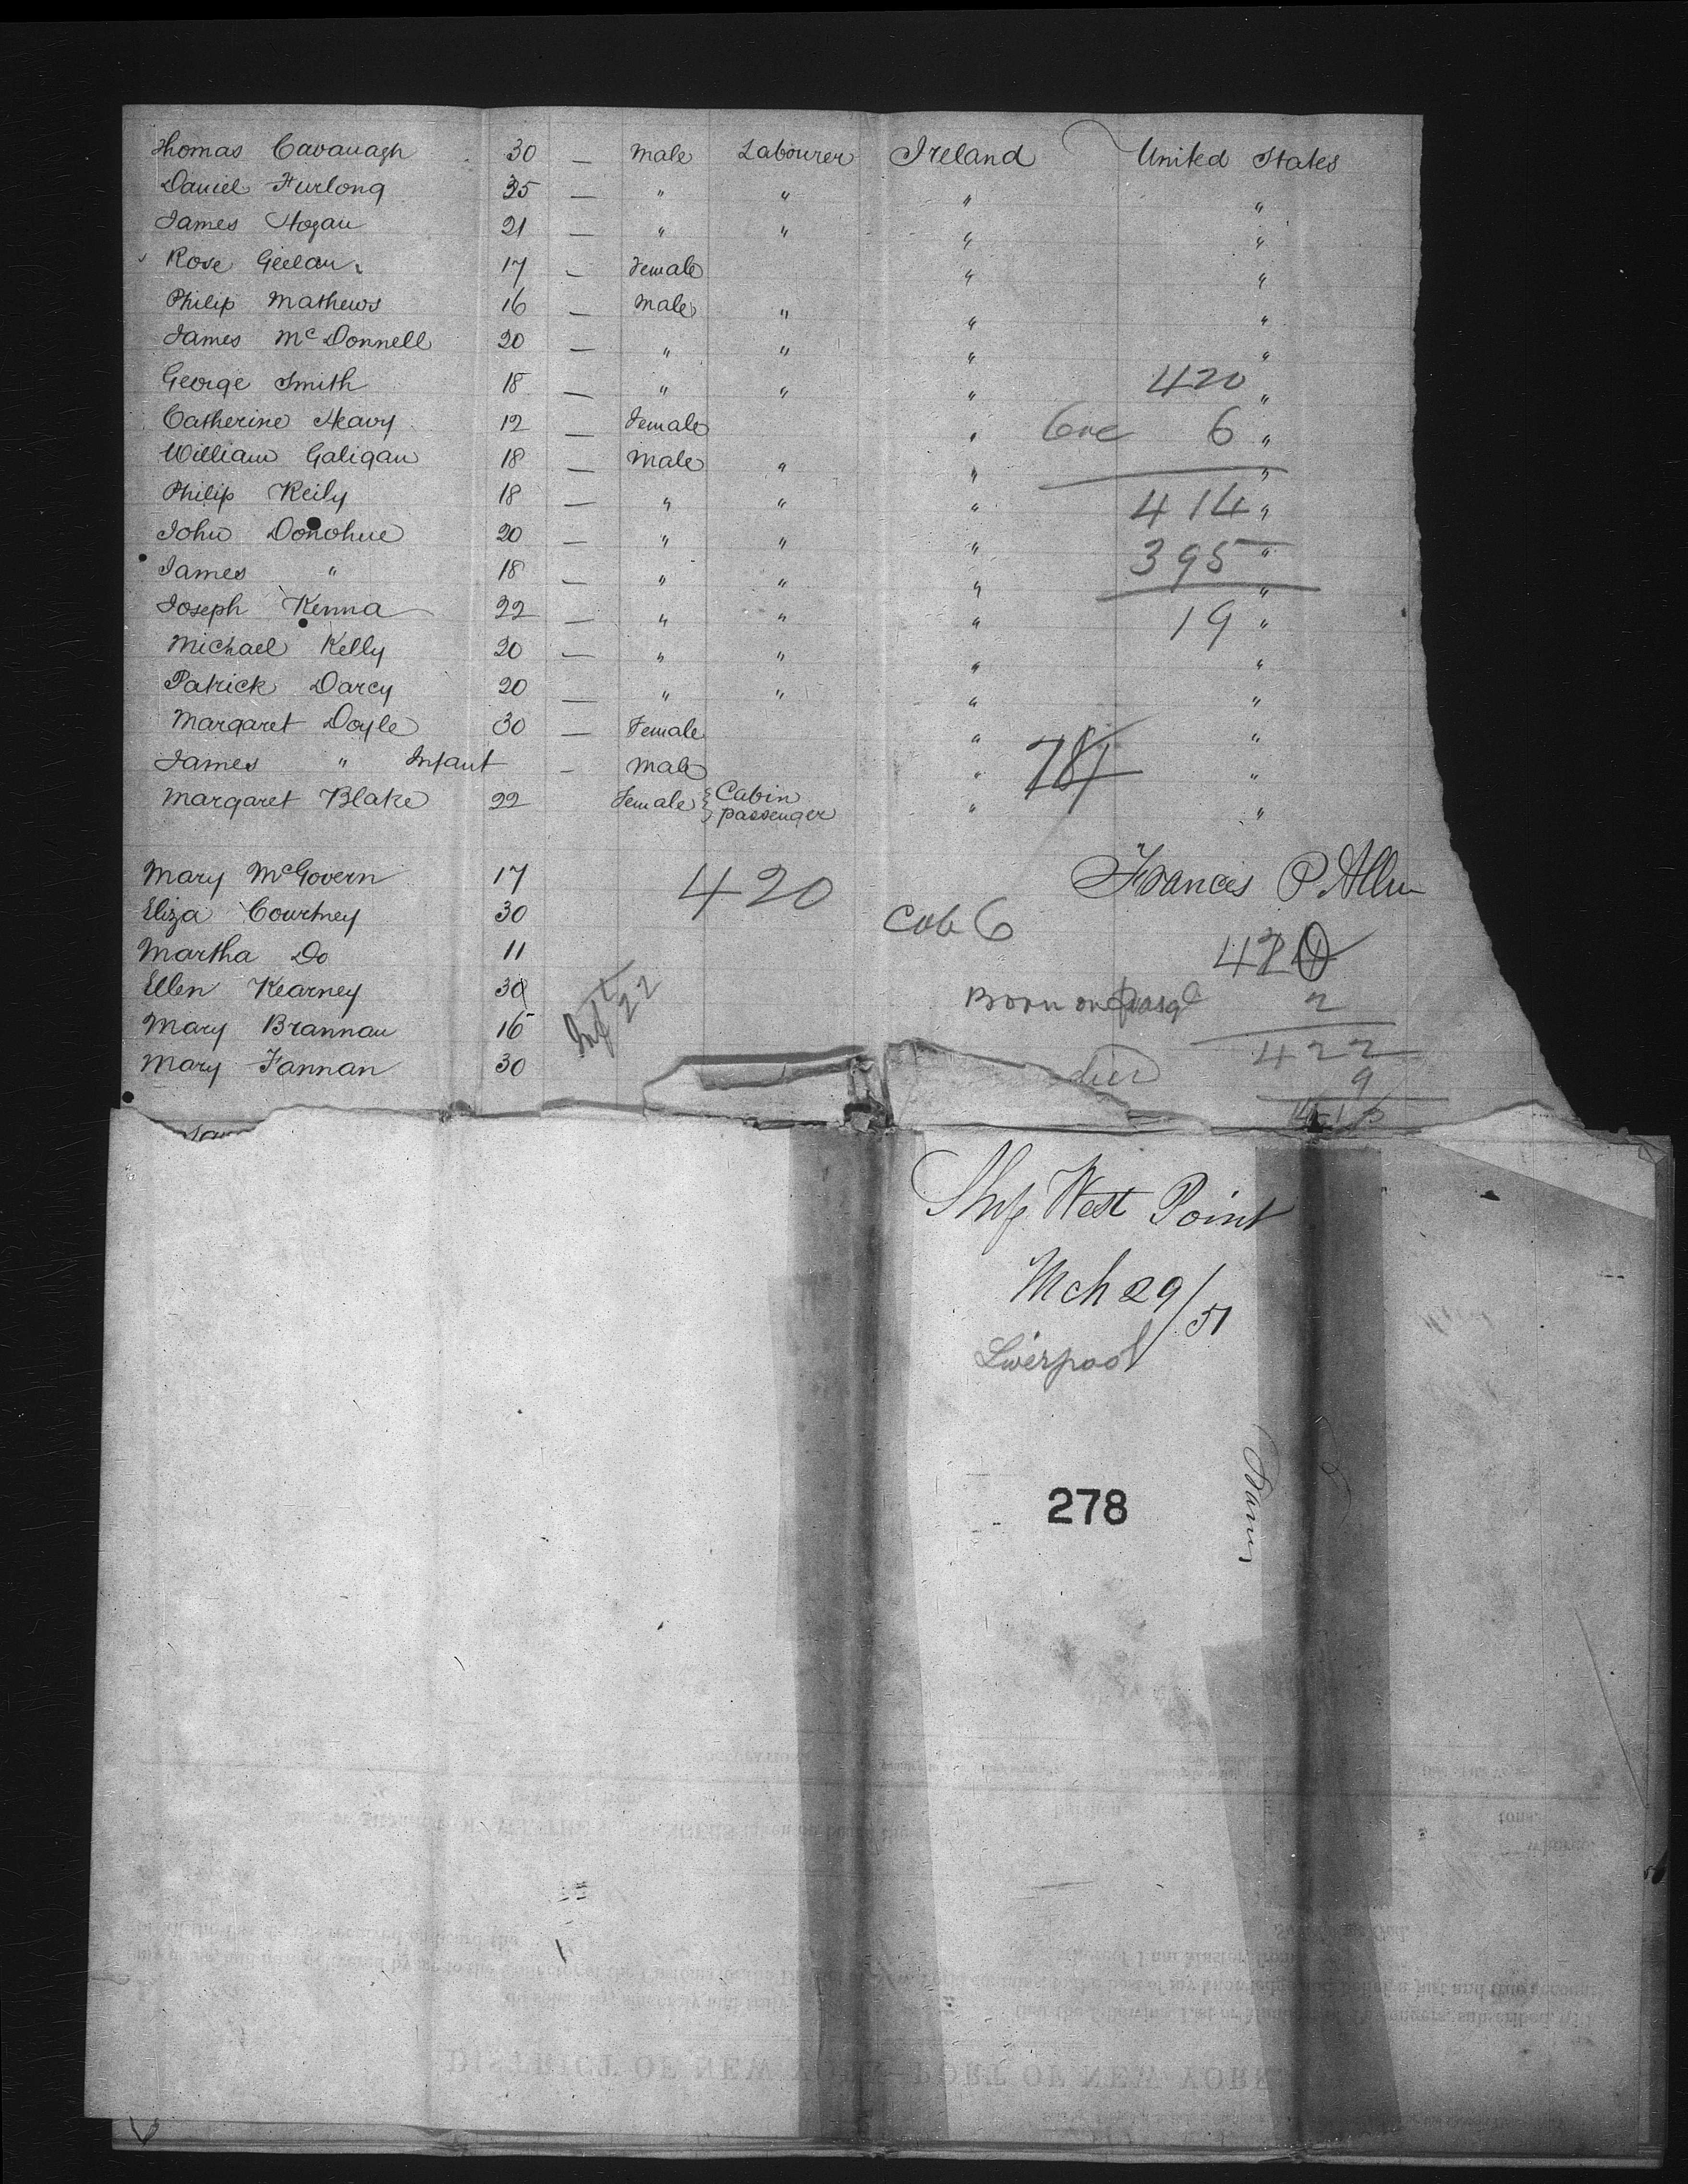 Thomas Cavanagh 30 — Male Labourer Ireland United States
Daniel Furlong 35 — " " " "
James Hogan 21 — " " " "
Rose Geelan 17 — Female " "
Philip Mathews 16 — Male " " "
James McDonnell 20 — " " " "
George Smith 18 — " " " " 420
Catherine Heavy 12 — Female " " 6
William Galigan 18 — Male " " "
Philip Keily 18 — " " " " 414
John Donohue 20 — " " " " 395
James " 18 — " " " "
Joseph Kenna 22 — " " " " 19
Michael Kelly 20 — " " " "
Patrick Darcy 20 — " " " "
Margaret Doyle 30 — Female " "
James " Infant — Male " "
Margaret Blake 22 Female Cabin passenger " "
Mary McGovern 17 420 Francis P Allen
Eliza Courtney 30 Cab 6
Martha Do 11
Ellen Kearney 30 Inft 22 Born on passge 2
Mary Brannan 16 422
Mary Fannan 30 died 9
Ship West Point
Mch 29/51
Liverpool
278
DISTRICT OF NEW YORK—PORT OF NEW YORK